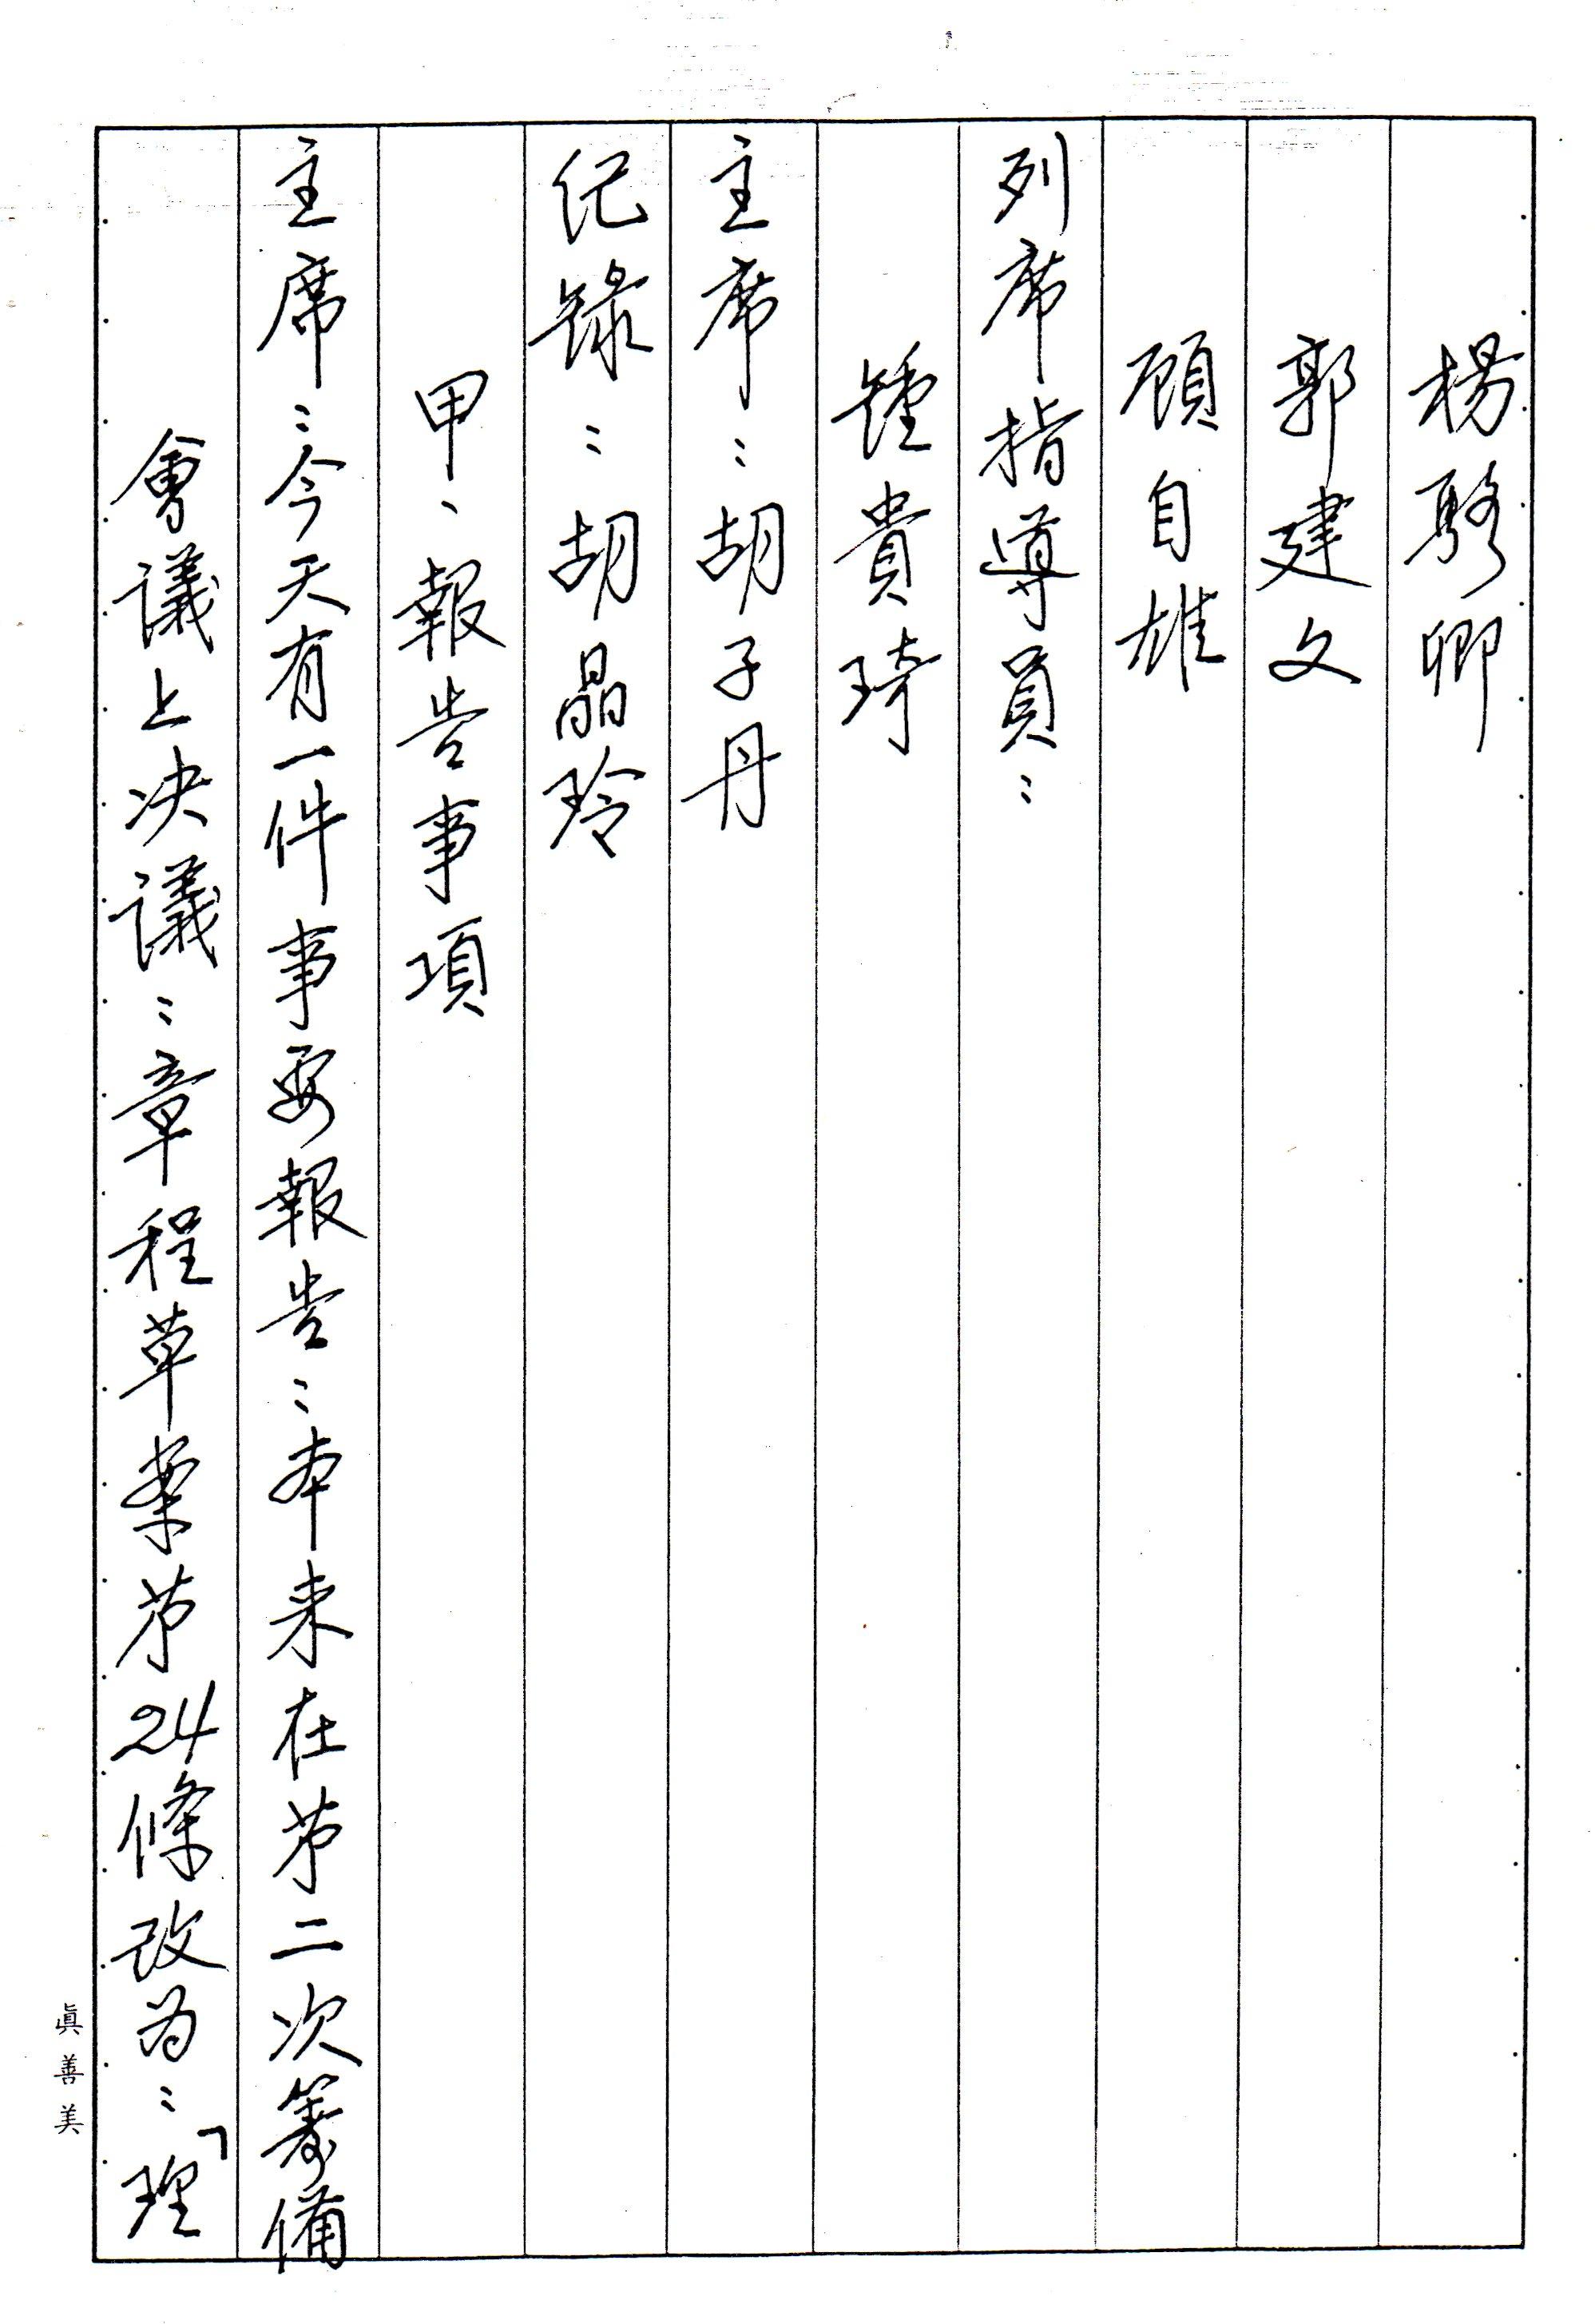 楊駱卿
郭建文
顧自雄
列席指導員：
鍾貴琦
主席：胡子丹
紀錄：胡晶玲
甲、報告事項
主席：今天有一件事要報告：本来在苐二次筹備
會議上决議：章程草案苐24條改为：「理
眞善美